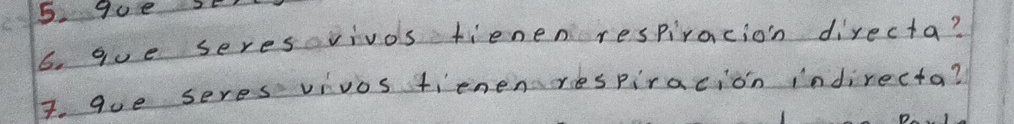 5. que
6. que seres vivos tienen respiración directa?
7. que seres vivos tienen respiración indirecta?